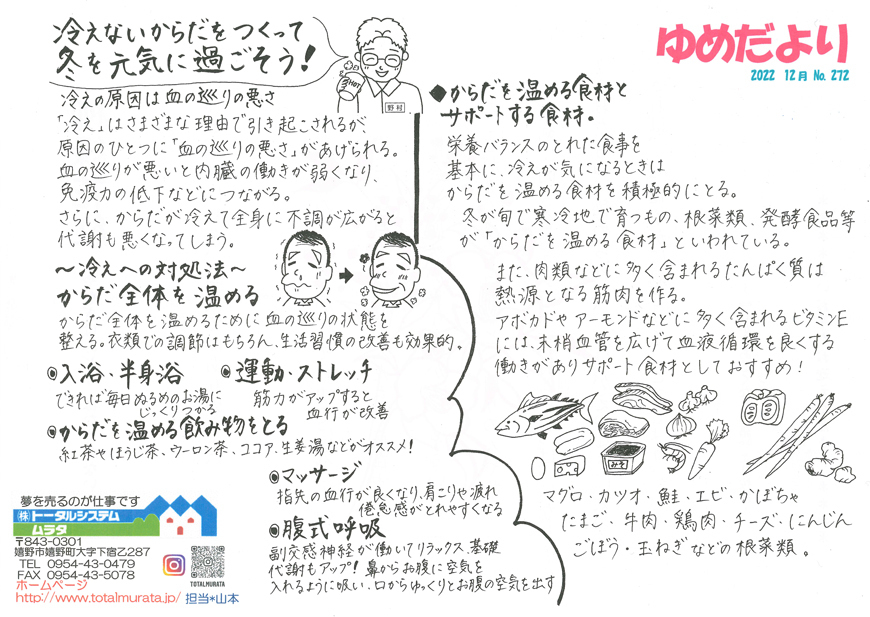 冷えないからだをつくって
冬を元気に過ごそう!
HOT
野村
ゆめだより
2022 12月 No. 272
冷えの原因は血の巡りの悪さ
「冷え」はさまざまな理由で引き起こされるが、
原因のひとつに「血の巡りの悪さ」があげられる。
血の巡りが悪いと内臓の働きが弱くなり、
免疫力の低下などにつながる。
さらに、からだが冷えて全身に不調が広がると
代謝も悪くなってしまう。
〜冷えへの対処法〜
からだ全体を温める
からだ全体を温めるために血の巡りの状態を
整える。衣類での調節はもちろん、生活習慣の改善も効果的。
◉入浴・半身浴
できれば毎日ぬるめのお湯に
じっくりつかる
◉運動・ストレッチ
筋力がアップすると
血行が改善
◉からだを温める飲み物をとる
紅茶やほうじ茶、ウーロン茶、ココア、生姜湯などがオススメ!
◉マッサージ
指先の血行が良くなり、肩こりや疲れ
倦怠感がとれやすくなる
◉腹式呼吸
副交感神経が働いてリラックス、基礎
代謝もアップ!鼻からお腹に空気を
入れるように吸い、口からゆっくりとお腹の空気を出す
◆からだを温める食材と
サポートする食材。
栄養バランスのとれた食事を
基本に、冷えが気になるときは
からだを温める食材を積極的にとる。
冬が旬で寒冷地で育つもの、根菜類、発酵食品等
が「からだを温める食材」といわれている。
また、肉類などに多く含まれるたんぱく質は
熱源となる筋肉を作る。
アボカドやアーモンドなどに多く含まれるビタミンE
には、末梢血管を広げて血液循環を良くする
働きがありサポート食材としておすすめ!
みそ
マグロ・カツオ・鮭・エビ・かぼちゃ
たまご・牛肉・鶏肉・チーズ・にんじん
ごぼう・玉ねぎなどの根菜類。
夢を売るのが仕事です
㈱トータルシステム
ムラタ
〒843-0301
嬉野市嬉野町大字下宿乙287
TEL 0954-43-0479
FAX 0954-43-5078
ホームページ
http://www.totalmurata.jp/
TOTALMURATA
担当*山本